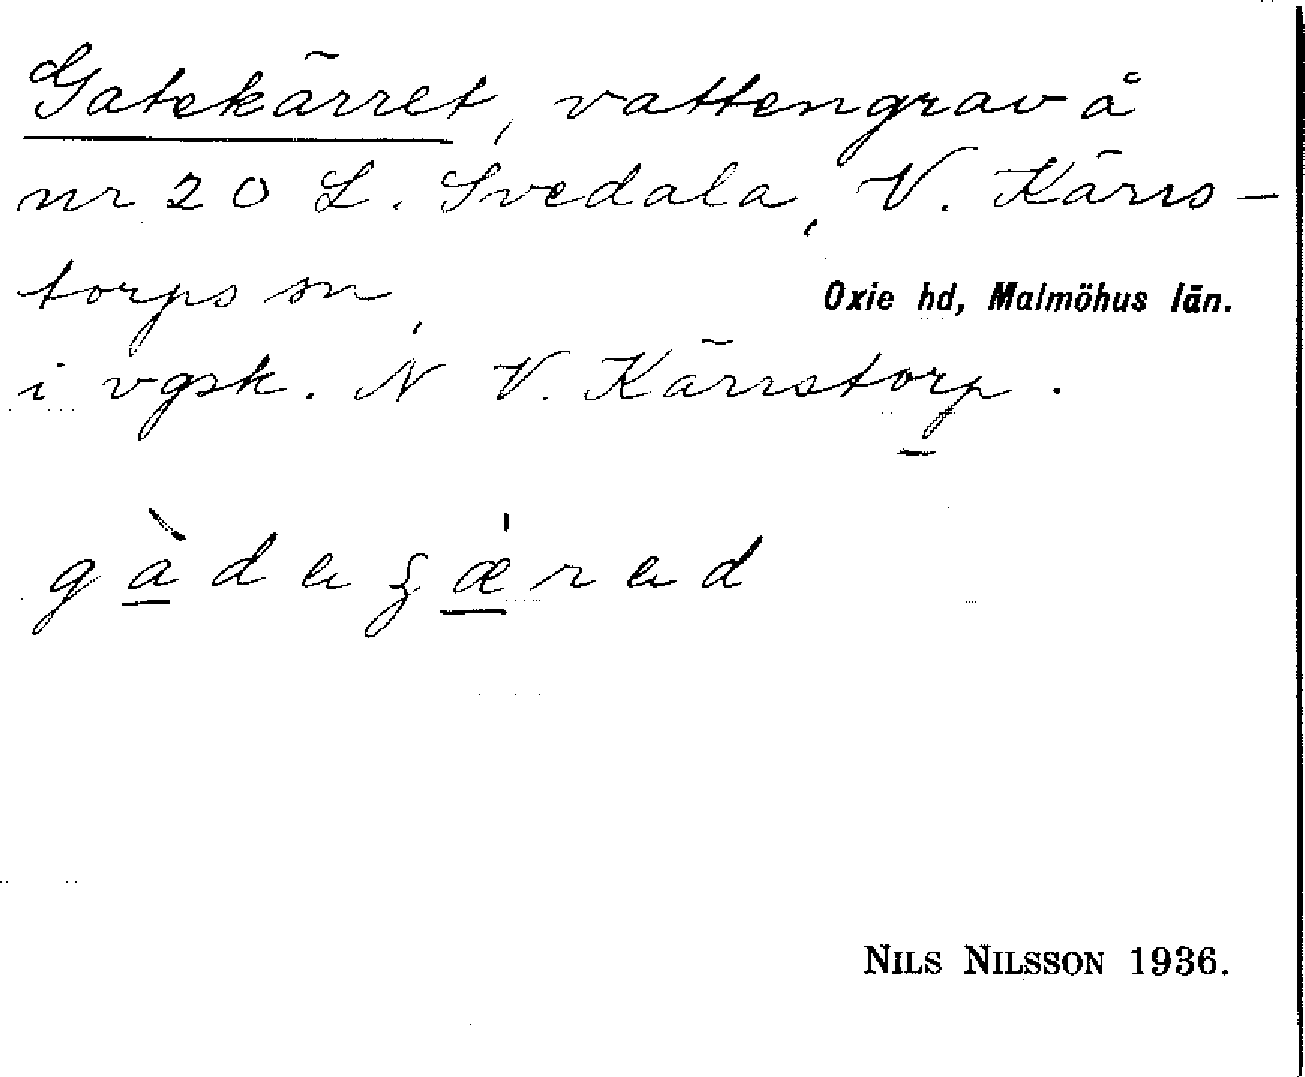 Gatekärret, vattengrav å
nr 20 L. Svedala, V. Kärrs-
torps sn,
Oxie hd, Malmöhus län.
i vgsk. N V. Kärrstorp.
NILS NILSSON 1936.